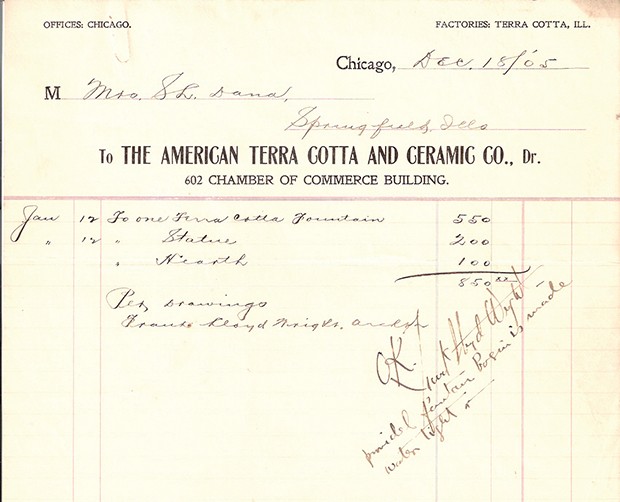 OFFICES: CHICAGO.
FACTORIES: TERRA COTTA, ILL.
Chicago, Dec. 18/05
M Mrs. S L. Dana,
Springfield, Ills
To THE AMERICAN TERRA COTTA AND CERAMIC CO., Dr.
602 CHAMBER OF COMMERCE BUILDING.
Jan 12 To one Terra Cotta Fountain 550
" 12 " Statue 200
" Hearth 100
850
Per Drawings
Frank Lloyd Wright. Archt
OK. Frank Lloyd Wright
provided fountain basin is made
water tight